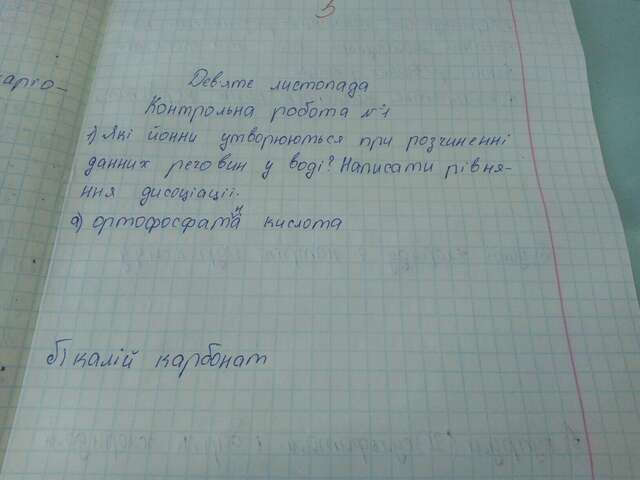 5
арго-
Дев'яте листопада
Контрольна робота №1
1) Які йонни утворюються при розчиненні
данних речовин у воді? Написати рівня-
ння дисоціації.
а) ортофосфатна кислота
б) калій карбонат